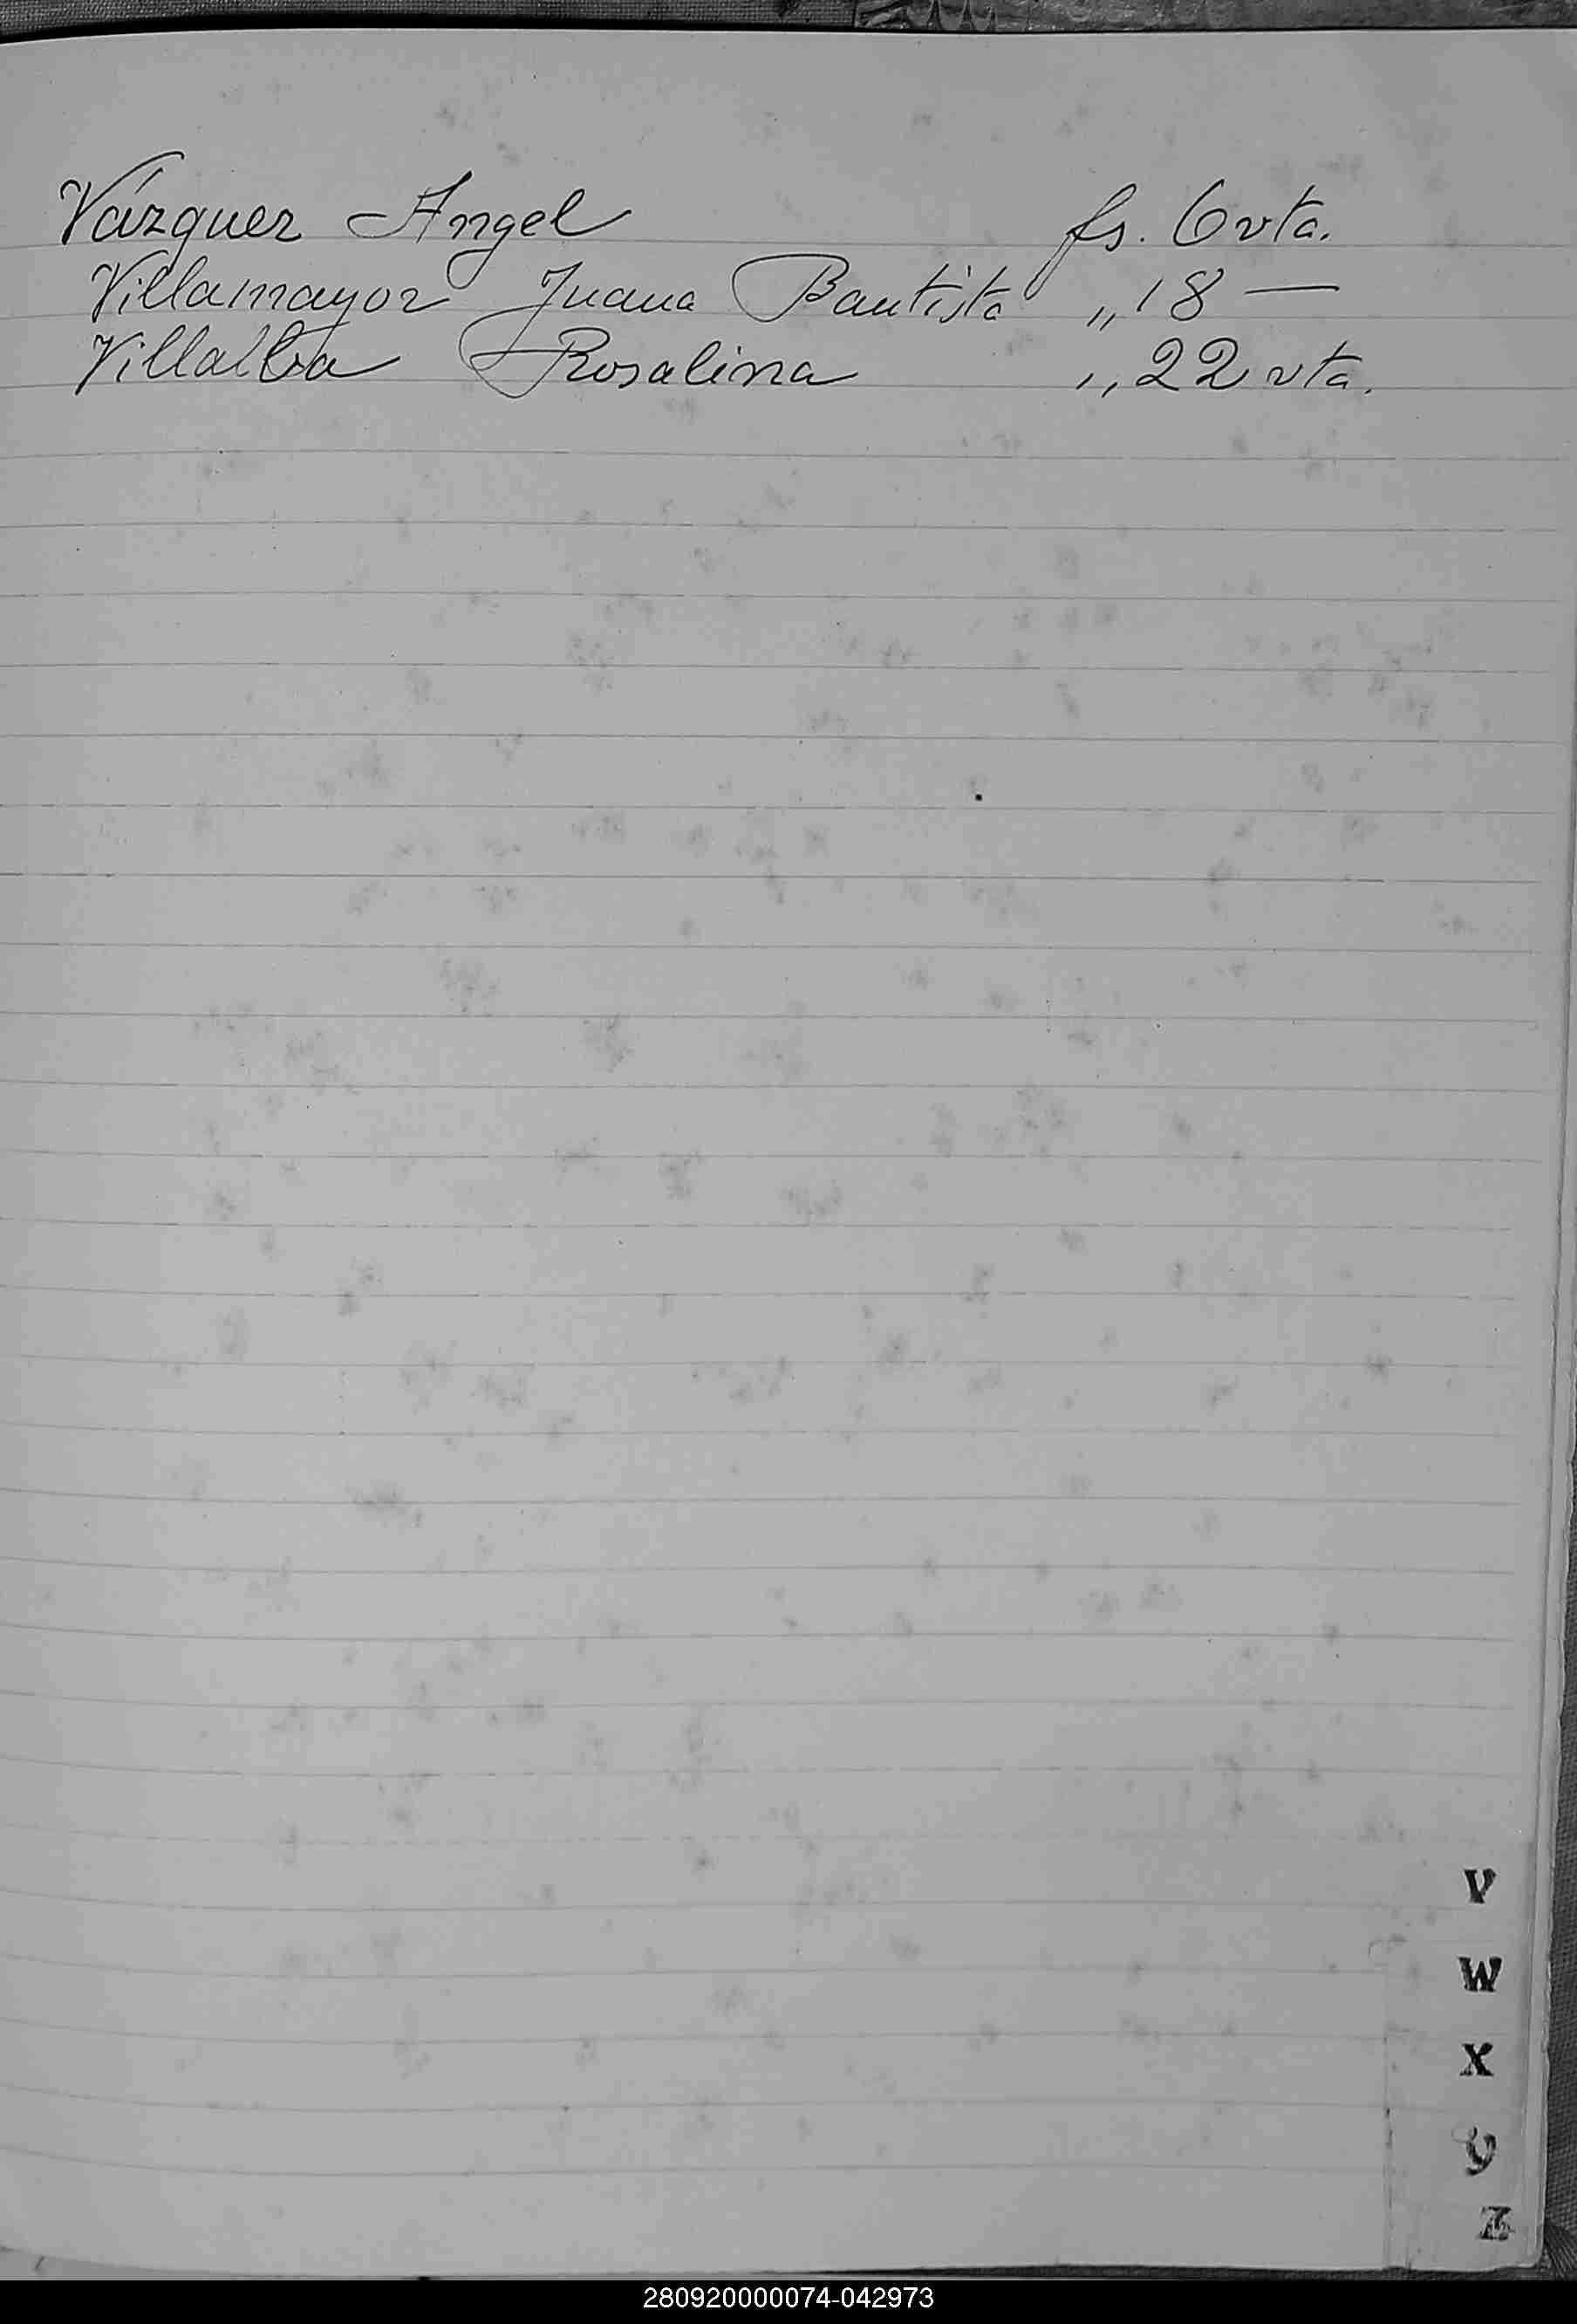 Vázquez Angel fs. 6 vta.
Villamayor Juana Bautista „ 18 —
Villalba Rosalina „ 22 vta.
V
W
X
Y
Z
280920000074-042973